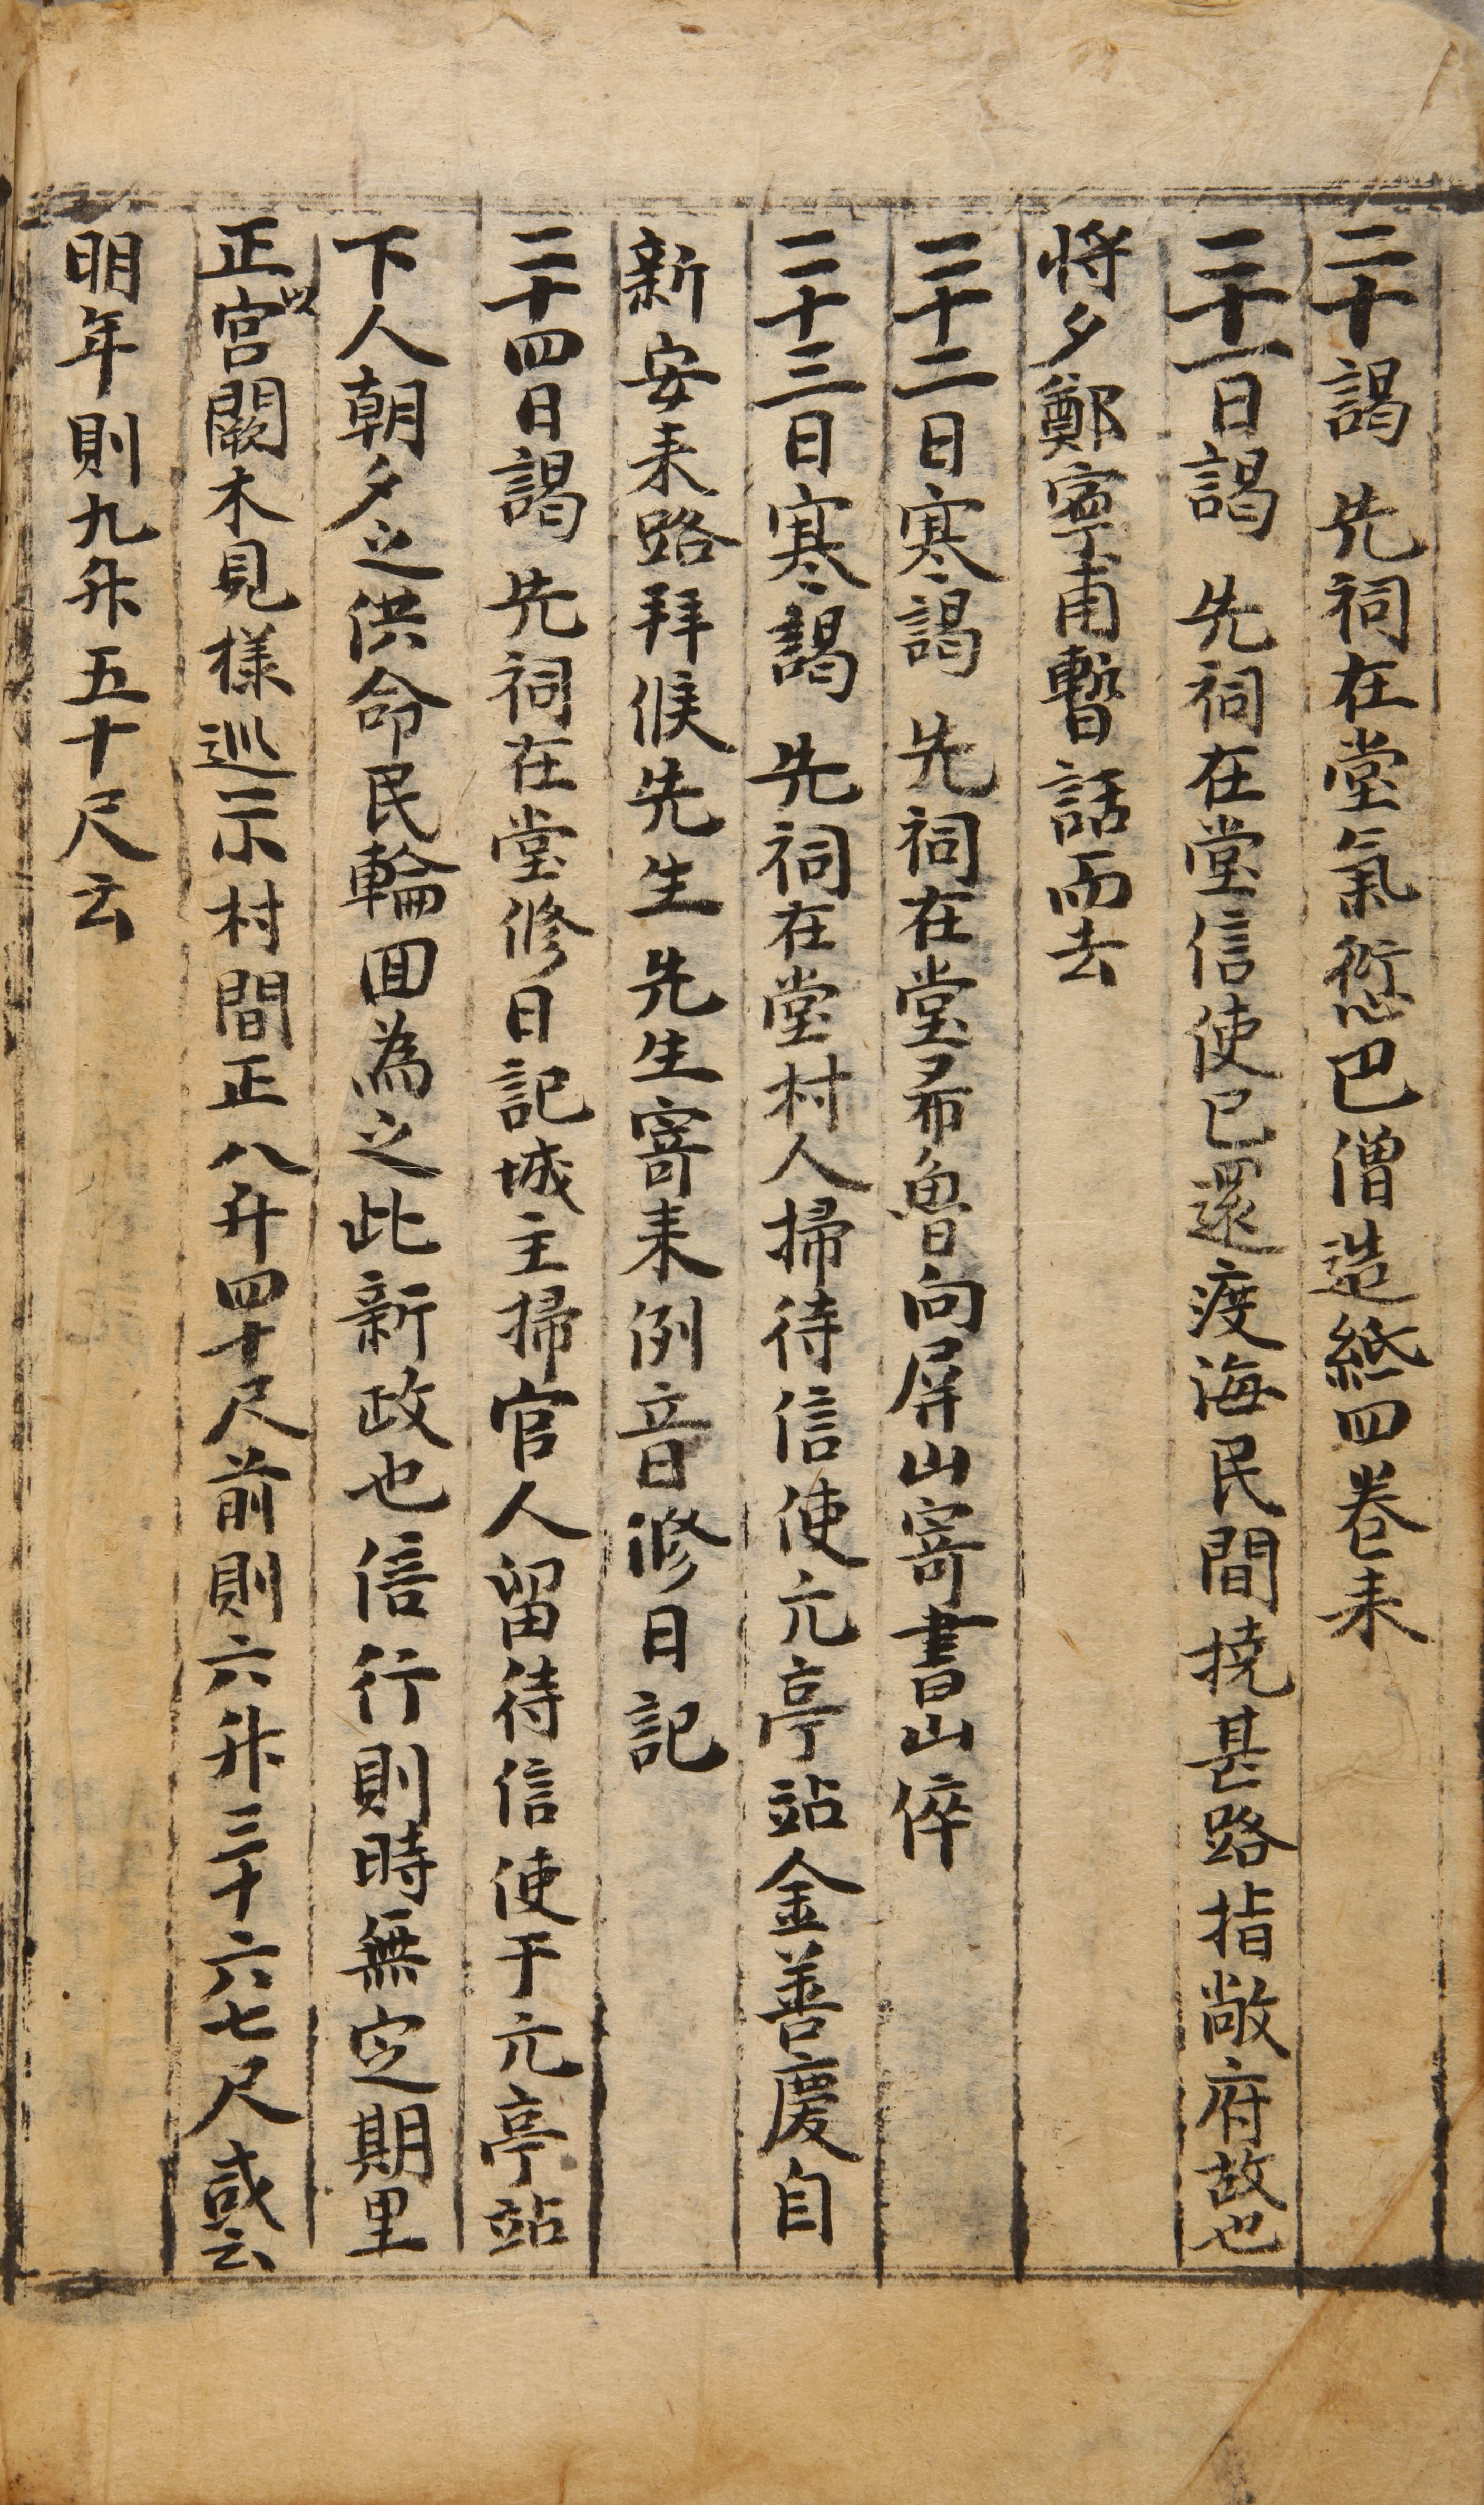 二十謁 先祠在堂氣愆巴僧造紙四卷来
二十一日謁 先祠在堂信使已還渡海民間撓甚路指敞府故也
将夕鄭寧甫暫話而去
二十二日寒謁 先祠在堂希魯向屏山寄書山倅
二十三日寒謁 先祠在堂村人掃待信使亢亭站金善慶自
新安来路拜候先生先生寄来例音修日記
二十四日謁 先祠在堂修日記城主掃官人留待信使于亢亭站
下人朝夕之供命民輪回為之此新政也信行則時無定期里
正以宮闕木見樣巡示村間正八升四十尺前則六升三十六七尺或云
明年則九升五十尺云